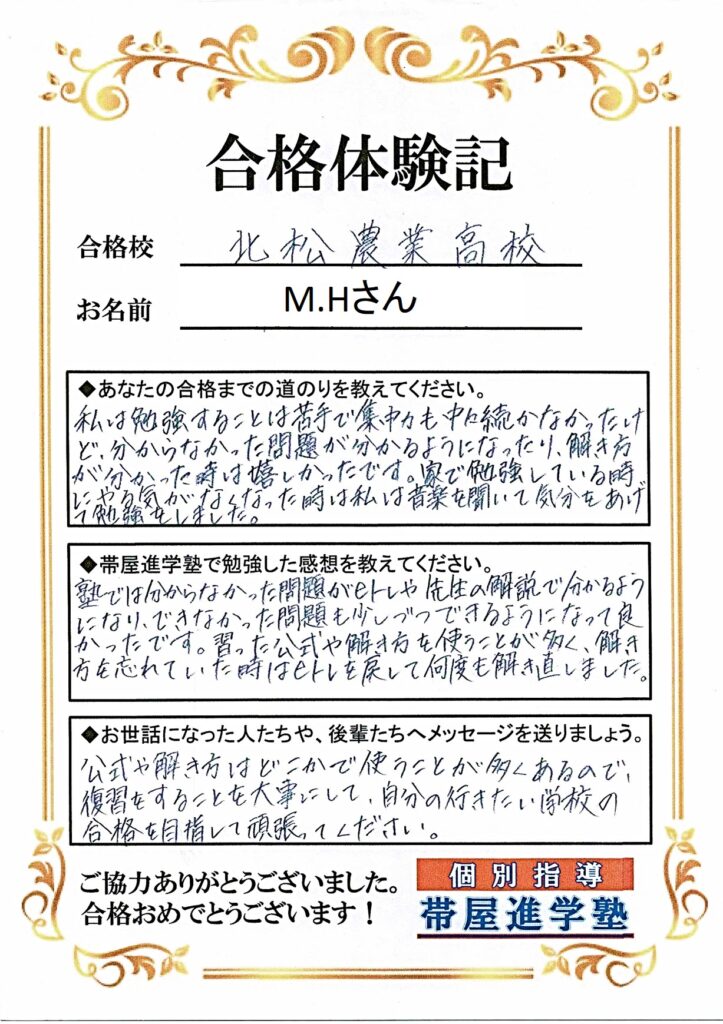 合格体験記
合格校 北松農業高校
お名前 M.Hさん
◆あなたの合格までの道のりを教えてください。
私は勉強することは苦手で集中力も中々続かなかったけ
ど、分からなかった問題が分かるようになったり、解き方
が分かった時は嬉しかったです。家で勉強している時
にやる気がなくなった時は私は音楽を聞いて気分をあげ
て勉強をしました。
◆帯屋進学塾で勉強した感想を教えてください。
塾では分からなかった問題がeトレや先生の解説で分かるよう
になり、できなかった問題も少しづつできるようになって良
かったです。習った公式や解き方を使うことが多く、解き
方を忘れていた時はeトレを戻して何度も解き直しました。
◆お世話になった人たちや、後輩たちへメッセージを送りましょう。
公式や解き方はどこかで使うことが多くあるので、
復習をすることを大事にして、自分の行きたい学校の
合格を目指して頑張ってください。
ご協力ありがとうございました。
合格おめでとうございます！
個別指導
帯屋進学塾